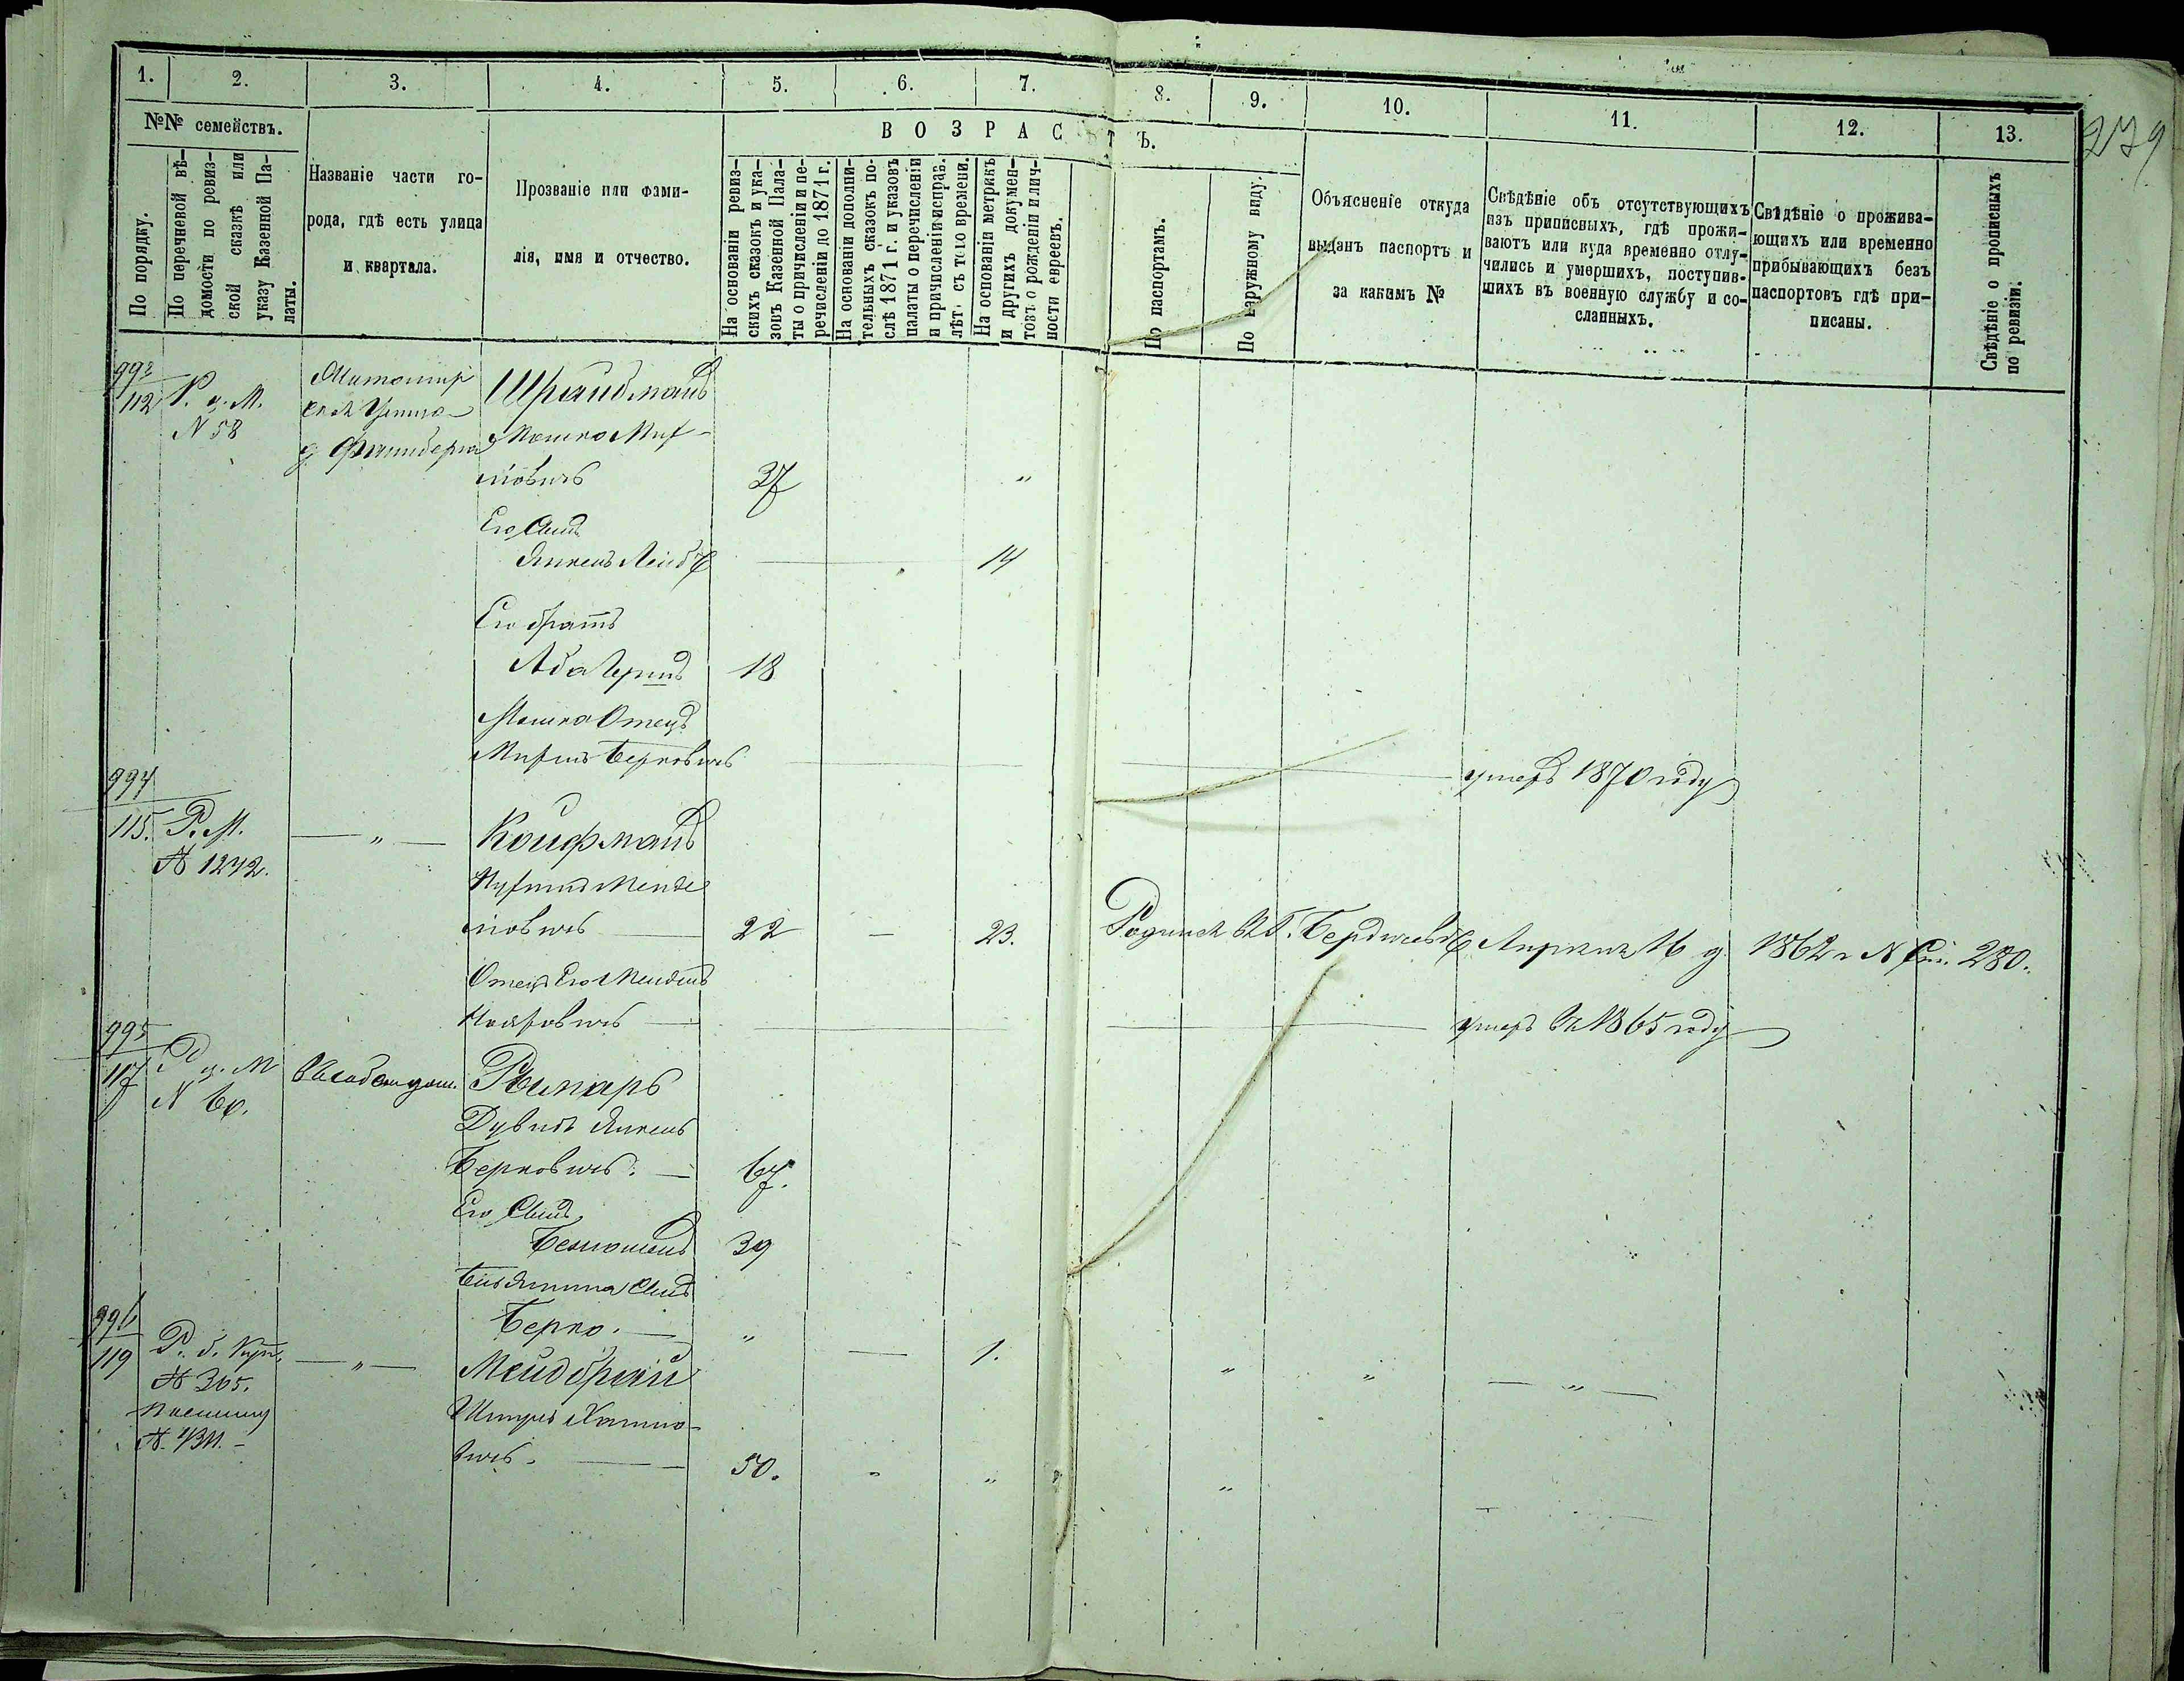 279
1. 2. 3. 4. 5. 6. 7. 8. 9. 10. 11. 12. 13.
№№ семействъ.
По порядку.
По перечневой вѣ-
домости по ревиз-
ской сказкѣ или
указу Казенной Па-
латы.
Названіе части го-
рода, гдѣ есть улица
и квартала.
Прозваніе или фами-
лія, имя и отчество.
ВОЗРАСТЪ.
На основаніи ревиз-
скихъ сказокъ и ука-
зовъ Казенной Пала-
ты о причисленіи и пе-
речисленіи до 1871 г.
На основаніи дополни-
тельныхъ сказокъ по-
слѣ 1871 г. и указовъ
палаты о перечисленіи
и причисленіи исправ.
лѣт. съ того времени.
На основаніи метрикъ
и другихъ докумен-
товъ о рожденіи и лич-
ности евреевъ.
По паспортамъ.
По наружному виду.
Объясненіе откуда
выданъ паспортъ и
за какимъ №
Свѣдѣніе объ отсутствующихъ
изъ приписныхъ, гдѣ прожи-
ваютъ или куда временно отлу-
чились и умершихъ, поступив-
шихъ въ военную службу и со-
сланныхъ.
Свѣдѣніе о прожива-
ющихъ или временно
прибывающихъ безъ
паспортовъ гдѣ при-
писаны.
Свѣдѣніе о прописныхъ
по ревизіи.
993
112 Р. г. М.
N 58
Шрайбманъ
Мошко
37 "
Его Сынъ
Янкель Лейбъ 14
Его братъ
Аба Гершъ 18
Мошко Отецъ
Берковичъ умеръ 1870 году
994
115. Р. М. — " — Койфманъ
№ 1242.
Менде
ліовичъ — 22 — 23. Родился въ Г. Бердичевѣ Апрѣля 16 д. 1862 г N 280.
Отецъ Его Мендель
умеръ въ 1865 году
995
117 Р г. М Рымарь
N 60.
Дувидъ Янкель
Берковичъ. — 67.
Его Сынъ
39
Сынъ
Берко. — " — 1. " " — " —
996
119 Р. б. Куп. — " —
№ 305.
Шмуль Хаимо-
вичъ. — 50. " " "